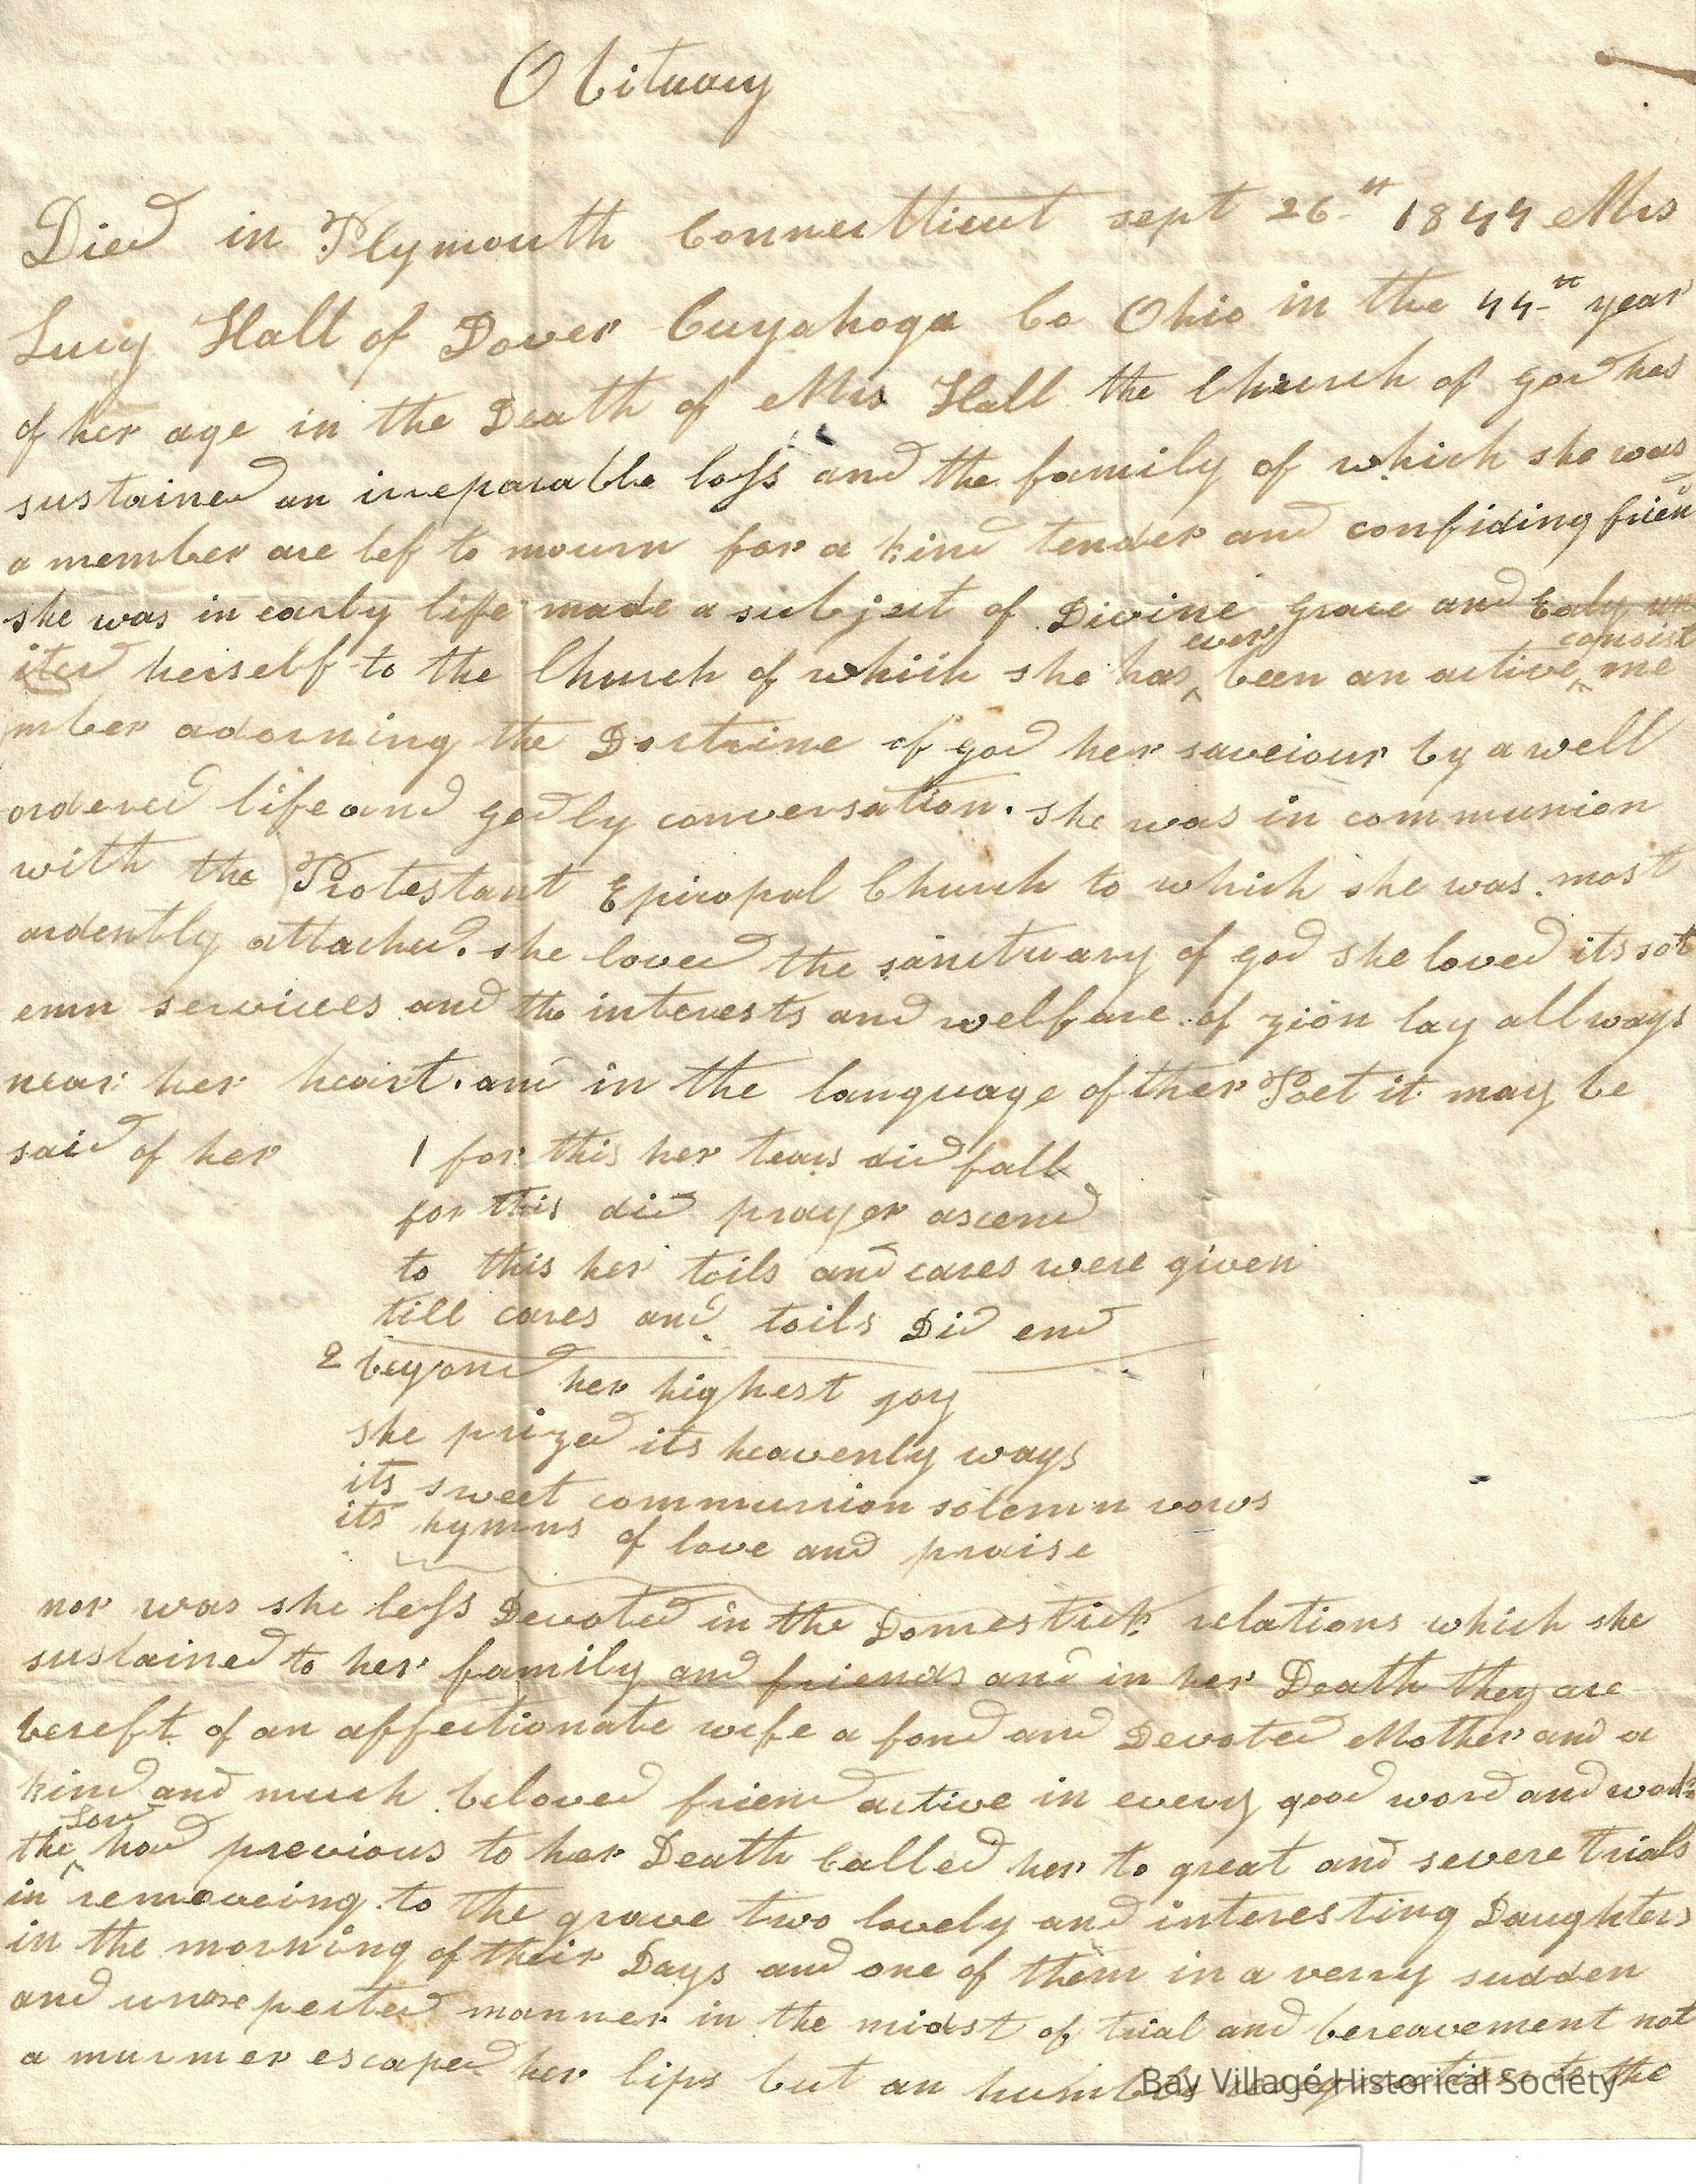 Obituary
Died in Plymouth Connectticut sept 26th 1844 Mrs
Lucy Hall of Dover Cuyahoga Co Ohio in the 44th year
of her age in the Death of Mrs Hall the Church of god has
sustained an irreparable loss and the family of which she was
a member are lef to mourn for a kind tender and confiding frien
she was in early life made a subject of Divine grace and Ealy un
ever consist
ited herself to the Church of which she has ^ been an active ^ me
mber adorning the Doctrine of god her saveiour by a well
ordered life and godly conversation. she was in communion
with the Protestant Episcopal Church to which she was most
ardently attached. she loved the sanctuary of god she loved its sol
emn services and the interests and welfare of zion lay allways
near her heart. and in the language of ther Poet it may be
said of her 1 for this her tears did fall
for this did prayer ascend
to this her toils and cares were given
till cares and toils Did end
2 beyond her highest joy
she prized its heavenly ways
its sweet communion solemn vows
its hymns of love and praise
nor was she less Devoted in the Domestick relations which she
sustained to her family and friends and in her Death they are
bereft of an affectionate wife a fond and Devoted Mother and a
kind and much beloved friend active in every good word and work
Lord
the ^ had previous to her Death Called her to great and severe trials
in remove­ing to the grave two lovely and interesting Daughters
in the morning of their Days and one of them in a verry sudden
and unexpected manner in the midst of trial and bereavement not
a murmer escaped her lips but an humble to the
Bay Village Historical Society